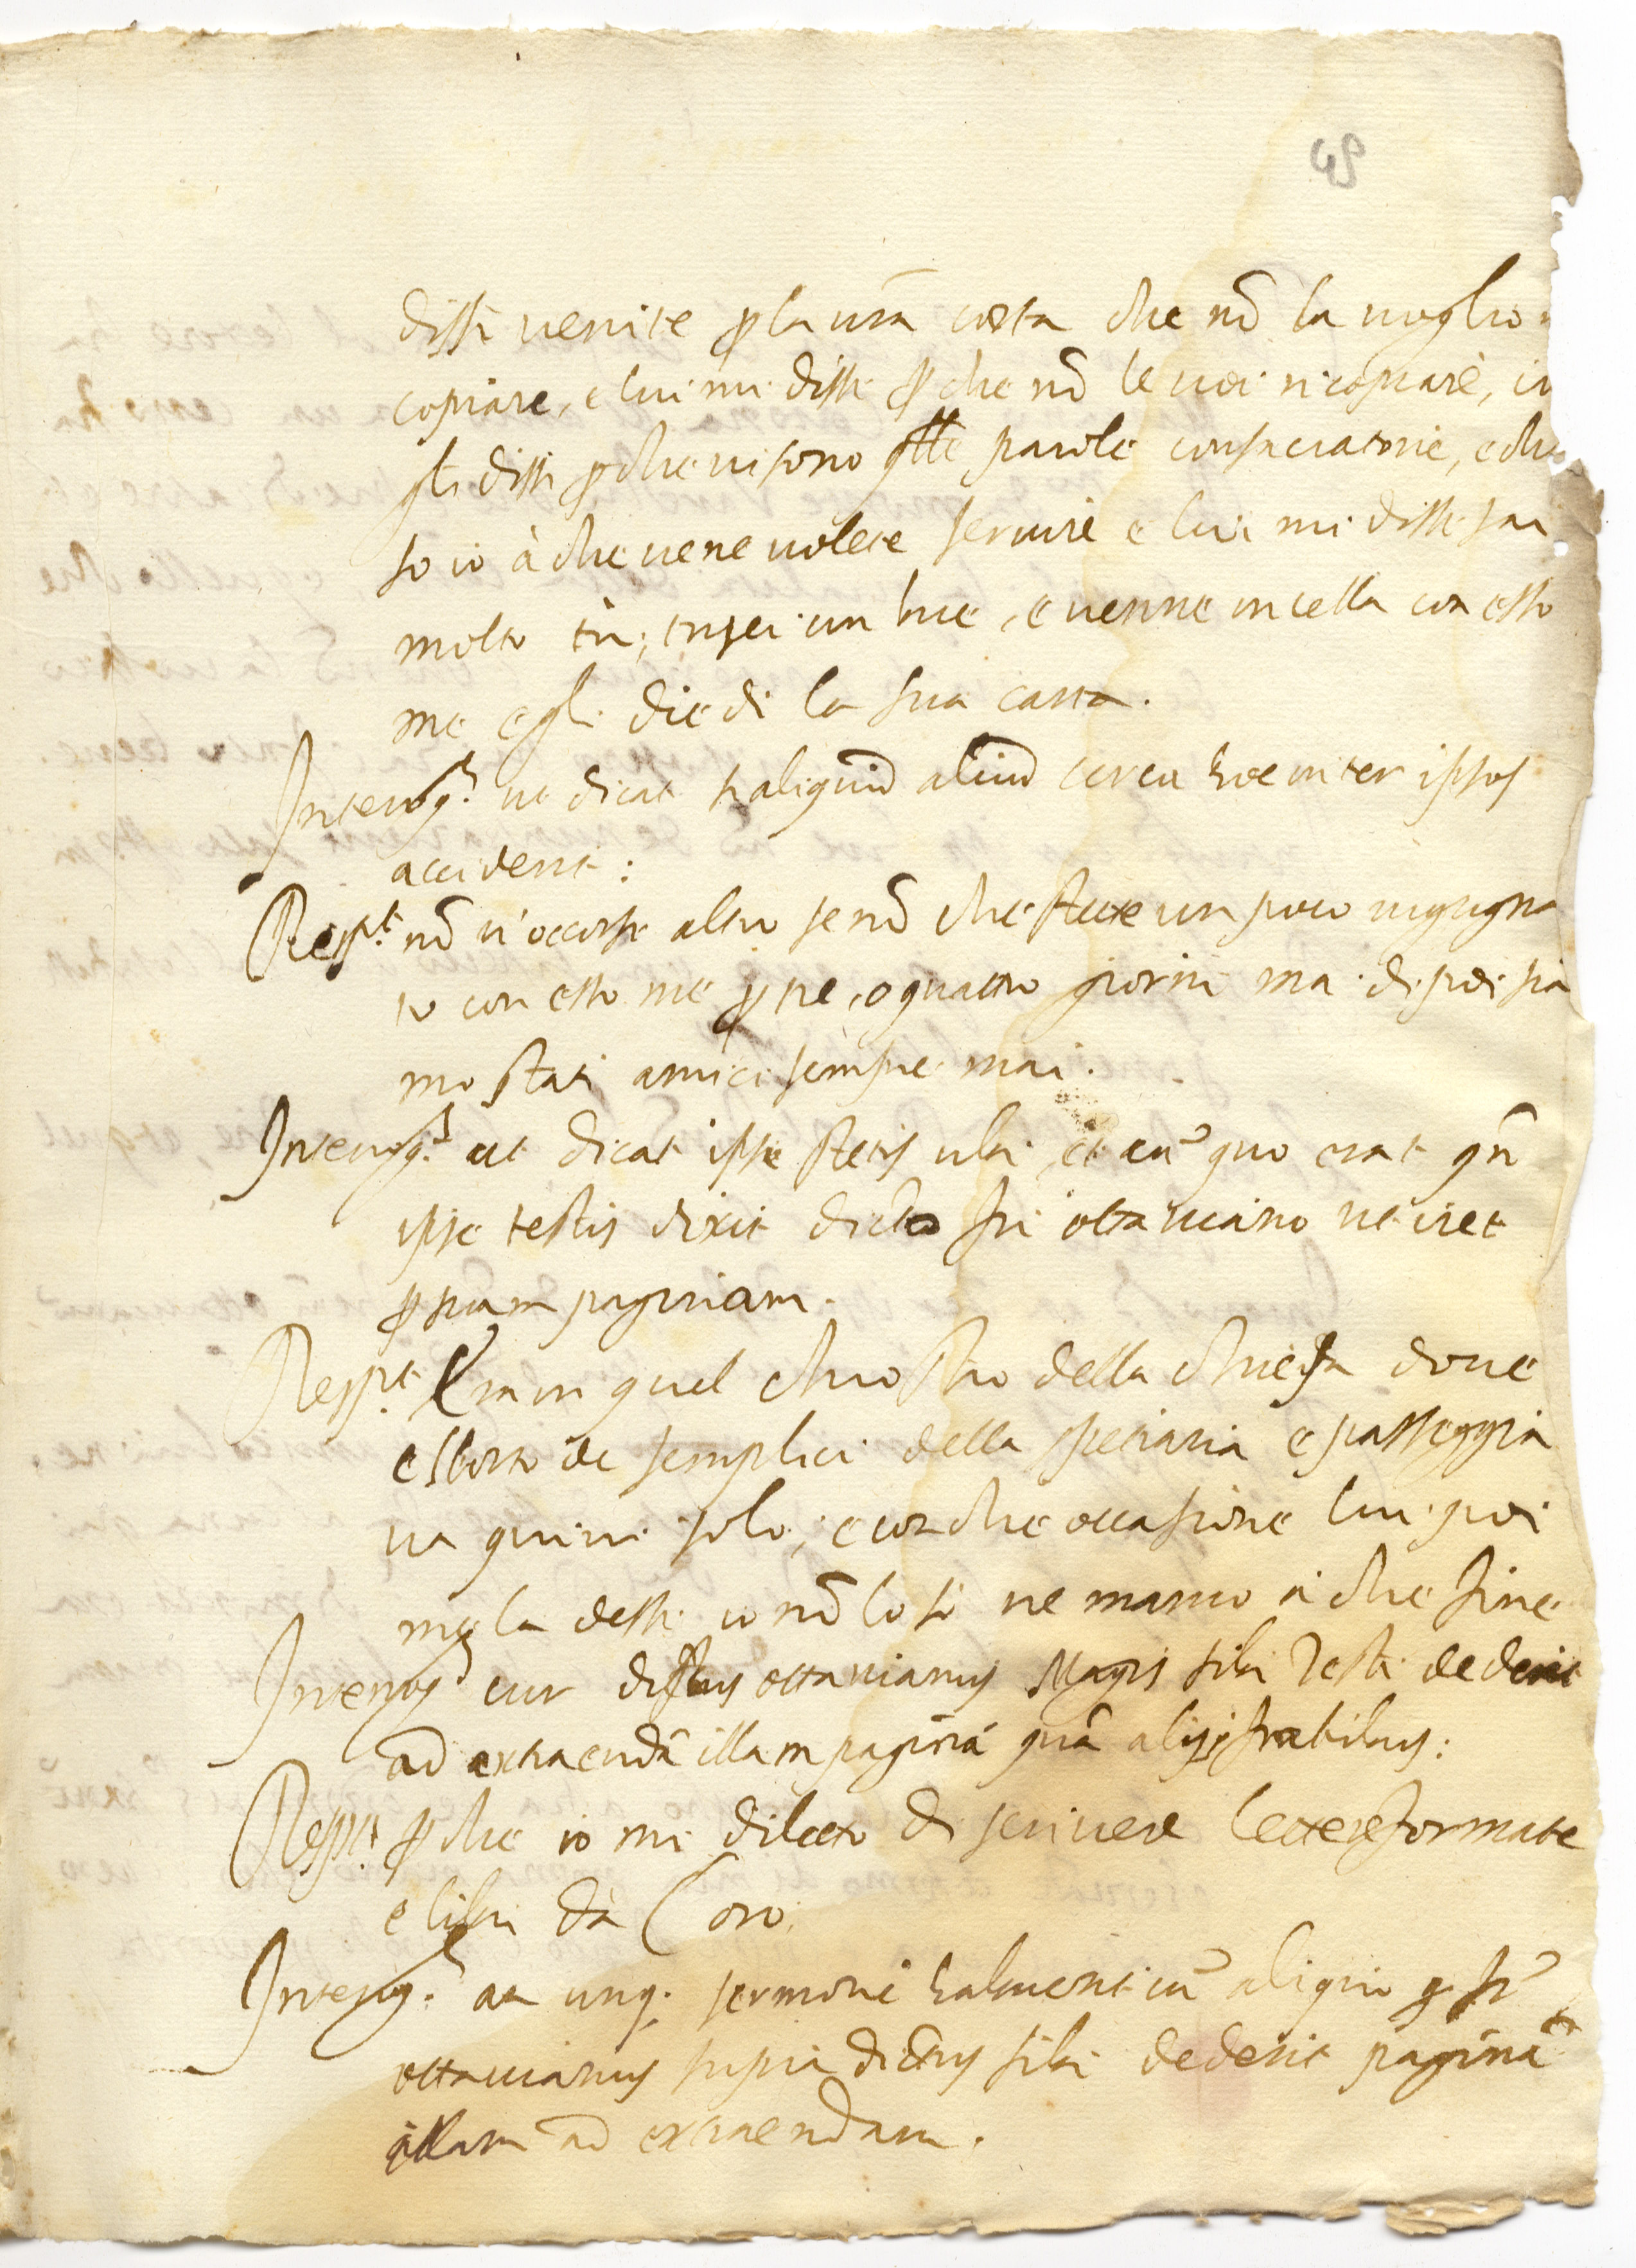 49
dissi venite p la vrã carta che nõ la voglio
copiare, e lui mi disse p che nõ le voi ricopiare, io
gli dissi p che vi sono qlle parole consacratorie, e che
so io à che vene volete servire e lui mi disse sai
molto tu, insei un hue, e venne in cella con esso
me e gli diedi la sua carta.
Interrog.s ut dicat si aliquid aliud circa hoc inter ipsos
acciderit:
Resp.t nõ vi occorse altro se nõ che stette un poco ingrugna
to con esso me p tre, o quattro giorni ma di poi sia
mo stati amici sempre mai.
Interrog.s ut dicat ipse testis ubi, et cũ quo erat qñ
ipse testis dixit dicto fri ottaviano ut iret
p suam paginam.
Resp.t Era in quel chiostro della chiesa dove
e l horto de semplici della spetiaria e passeggia
va quivi solo, e con che occasione lui poi
me la desse io nõ lo so ne manco à che fine
Interrog.s cur dictus ottavianus Magis sibi Testi dederit
ad extraendã illam paginã quã alijs fratibus:
Resp.t p che io mi diletto di scrivere lettere formate
e libri dà Coro.
Interrog.s an unq. sermone habuerit cũ aliquo q fr
ottavianus supra dictus sibi dederit paginã
illam ad extraendam.